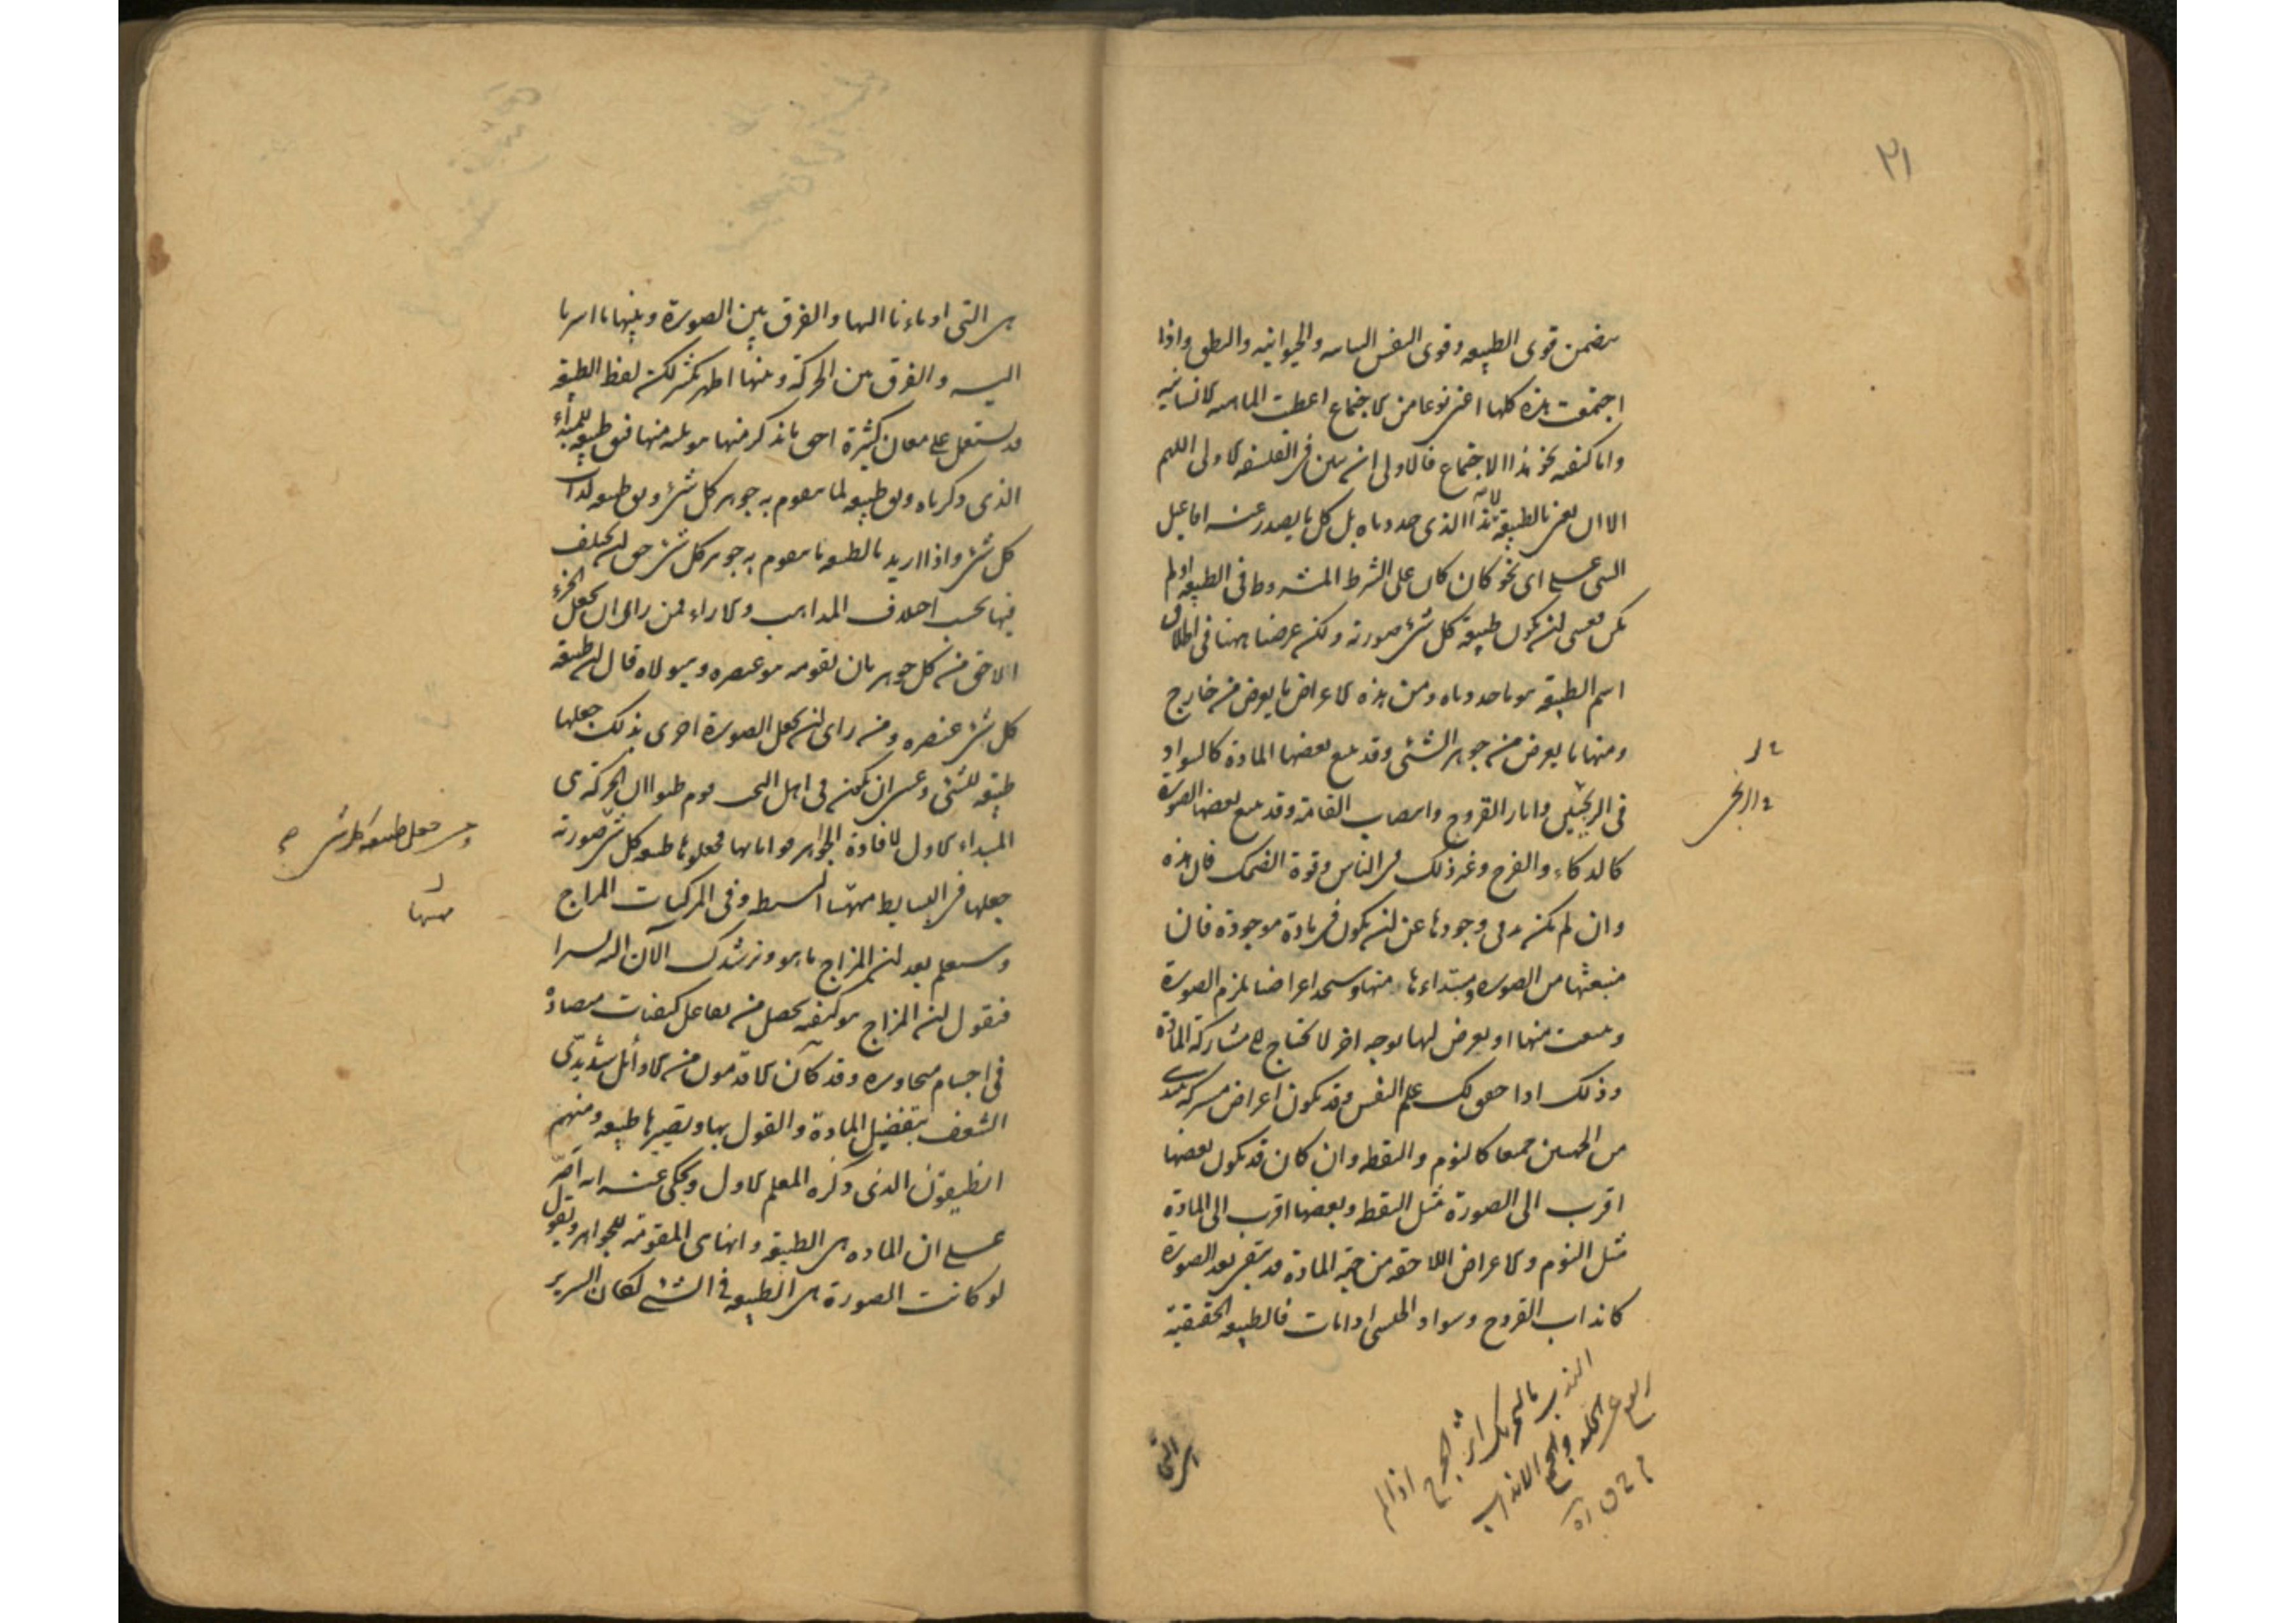 ٢١
تتضمن قوى الطبيعه وقوى النفس النباتيه والحيوانيه والنطق واذا
اجتمعت هذه كلها اعنى نوعا من الاجتماع اعطت الماهيه الانسانيه
واما كيفيه نحو هذا الاجتماع فالاولى ان يبين فى الفلسفه الاولى اللهم
الا ان يعنى بالطبيعة لا هذا الذى حددناه بل كل ما يصدر عنه افاعيل
الشى على اى نحو كان كان على الشرط المشروط فى الطبيعه او لم
يكن فعسى ان يكون طبيعة كل شئ صورته ولكن غرضنا ههنا فى اطلاق
اسم الطبيعة هو ما حددناه ومن هذه الاعراض ما يعرض من خارج
ومنها ما يعرض من جوهر الشئى وقد يتبع بعضها المادة كالسواد
فى الزنجى واثار القروح وانتصاب القامة وقد يتبع بعضها الصورة
كالذكاء والفرح وغير ذلك فى الناس وقوة الضحك فان هذه
وان لم يكن بد فى وجودها عن ان يكون فى مادة موجودة فان
منبعثها من الصوره ومبتداءها منها وستجد اعراضا تلزم الصورة
وتنبعث منها او يعرض لها بوجه اخر لا تحتاج الى مشاركة المادة
وذلك اذا حقق لك علم النفس وقد تكون اعراض مشتركه تبتدى
من الجهتين جميعا كالنوم واليقظه وان كان قد يكون بعضها
اقرب الى الصورة مثل اليقظه وبعضها اقرب الى المادة
مثل النوم والاعراض اللاحقه من جهة المادة قد تبقى بعد الصورة
كانداب القروح وسواد الحبشى اذا مات فالطبيعه الحقيقية
الندب بالتحريك اثر الجرح اذا لم
يرتفع عن الجلد والجمع الانداب
هى التى
هى التى اوماءنا اليها والفرق بين الصورة وبينها ما اشرنا
اليه والفرق بين الحركة وبينها اظهر كثيرا لكن لفظ الطبيعة
قد يستعمل على معان كثيرة احق ما نذكر منها هو ثلثه منها فيق طبيعه للمبداء
الذى ذكرناه ويق طبيعه لما يتقوم به جوهر كل شئ ويق طبيعه لذات
كل شئ واذا اريد بالطبيعه ما يتقوم به جوهر كل شئ حق ان يختلف
فيها بحسب اختلاف المذاهب والاراء فمن راى ان يجعل الجزء
الاحق من كل جوهر بان يقومه هو عنصره وهيولاه قال ان طبيعة
كل شئ عنصره ومن راى ان يجعل الصورة احرى بذلك جعلها
طبيعه للشئى وعسى ان يكون فى اهل البحث قوم ظنوا ان الحركة هى
المبداء الاول لافادة الجواهر قواماتها فجعلوها طبيعه كل شئ صورته
ومن جعل طبيعه كل شئ
جعلها فى البسايط مهيتها البسيطه وفى المركبات المزاج
وستعلم بعد ان المزاج ما هو ونرشدك الآن اليه يسيرا
فنقول ان المزاج هو كيفيه تحصل من تفاعل كيفيات متضادة
فى اجسام متجاوره وقد كان الاقدمون من الاوائل شديدى
الشعف بتفضيل المادة والقول بها وتصييرها طبيعه ومنهم
انطيقون الذى ذكره المعلم الاول ويحكى عنه انه اصر
على ان الماده هى الطبيعة وانها هى المقومة للجواهر ويقول
لو كانت الصورة هى الطبيعه فى الشئ لكان السرير